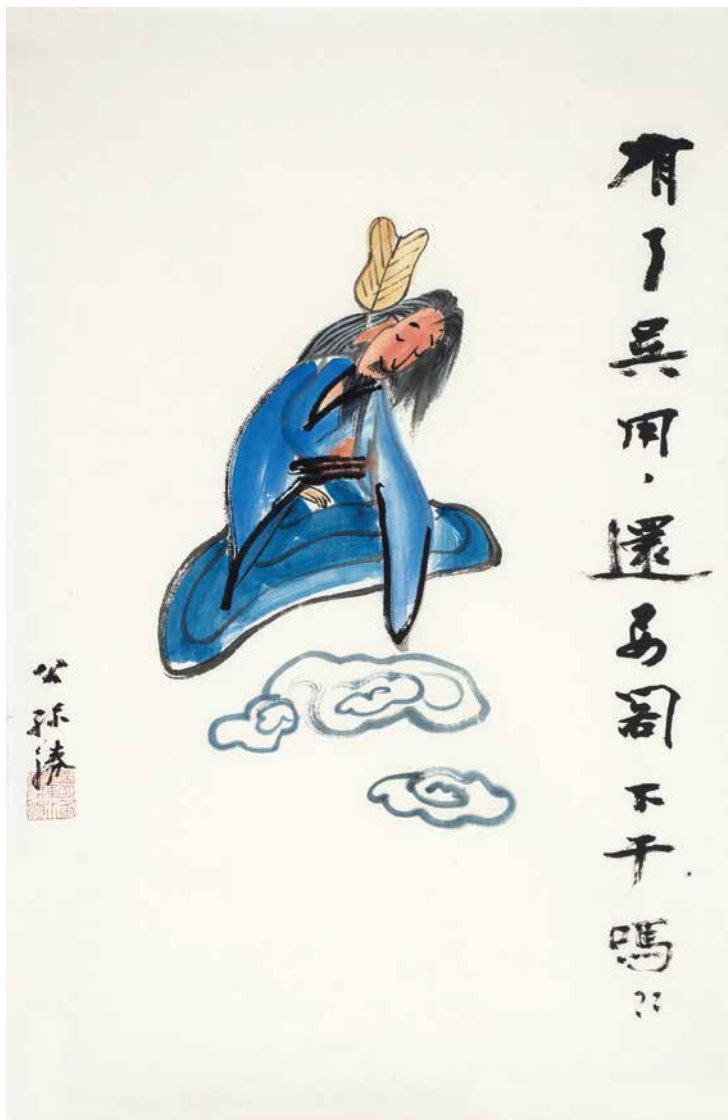 有了吳用，還要閣下干嗎？？
公孫勝